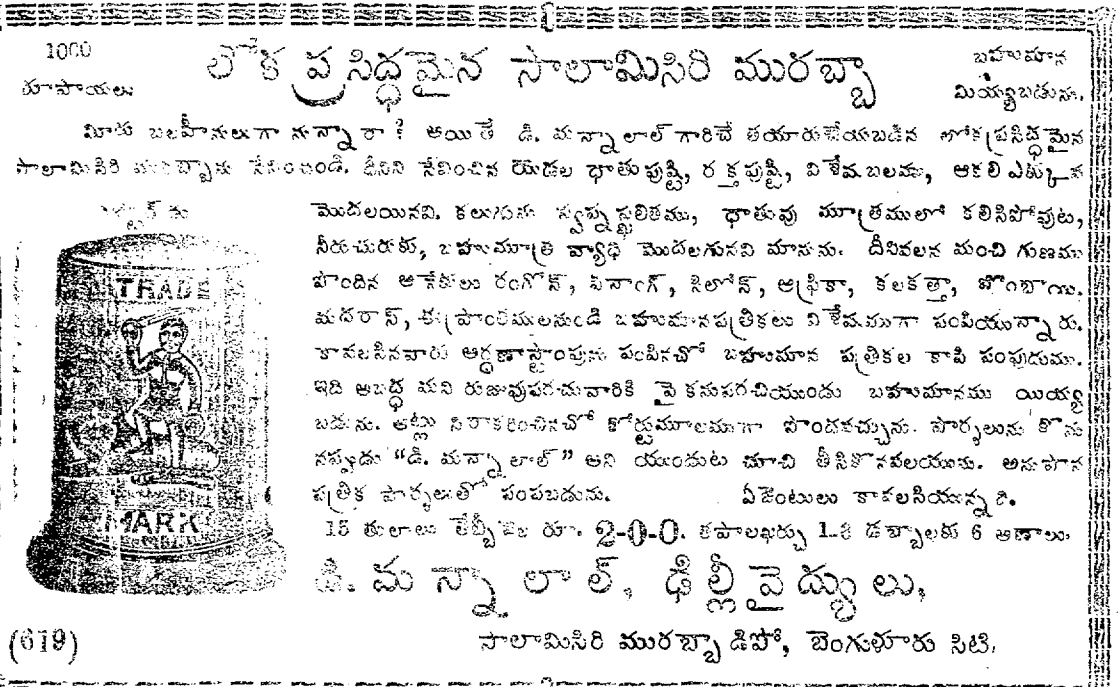 1000
రూపాయలు
లోక ప్రసిద్ధమైన సాలామిసిరి మురబ్బా
బహుమాన
మియ్యబడును.
మీరు బలహీనులుగా నున్నారా? అయితే డి. మన్నాలాల్ గారిచే తయారుచేయబడిన లోకప్రసిద్ధమైన
సాలామిసిరి మురబ్బాను సేవించండి. దీనిని సేవించిన యెడల ధాతుపుష్టి, రక్తపుష్టి, విశేషబలము, ఆకలి ఎక్కువ
మొదలయినవి. కలుగును స్వప్నస్ఖలితము, ధాతువు మూత్రములో కలిసిపోవుట,
నీరుచురుకు, బహుమూత్ర వ్యాధి మొదలగునవి మానును. దీనివలన మంచి గుణము
పొందిన అనేకులు రంగోన్, పినాంగ్, సిలోన్, ఆఫ్రికా, కలకత్తా, బొంబాయి.
మదరాస్, ఈ ప్రాంతములనుండి బహుమానపత్రికలు విశేషముగా పంపియున్నారు.
కావలసినవారు అర్ధణాస్టాంపును పంపినచో బహుమాన పత్రికల కాపి పంపుదుము.
ఇది అబద్ధ మని రుజువుపరచువారికి పై కనుపరచియుండు బహుమానము యియ్య
బడును. అట్లు నిరాకరించినచో కోర్టుమూలముగా పొందవచ్చును. పార్శలును కొను
నప్పుడు "డి. మన్నాలాల్" అని యుండుట చూచి తీసికొనవలయును. అనుపాన
పత్రిక పార్శలుతో పంపబడును. ఏజెంటులు కావలసియున్నది.
15 తులాలు డబ్బీవెల రూ. 2-0-0. తపాలఖర్చు 1-3 డబ్బాలకు 6 అణాలు.
డి. మన్నాలాల్, ఢిల్లీవైద్యులు,
సాలామిసిరి మురబ్బా డిపో, బెంగుళూరు సిటి.
TRADE
MARK
(619)